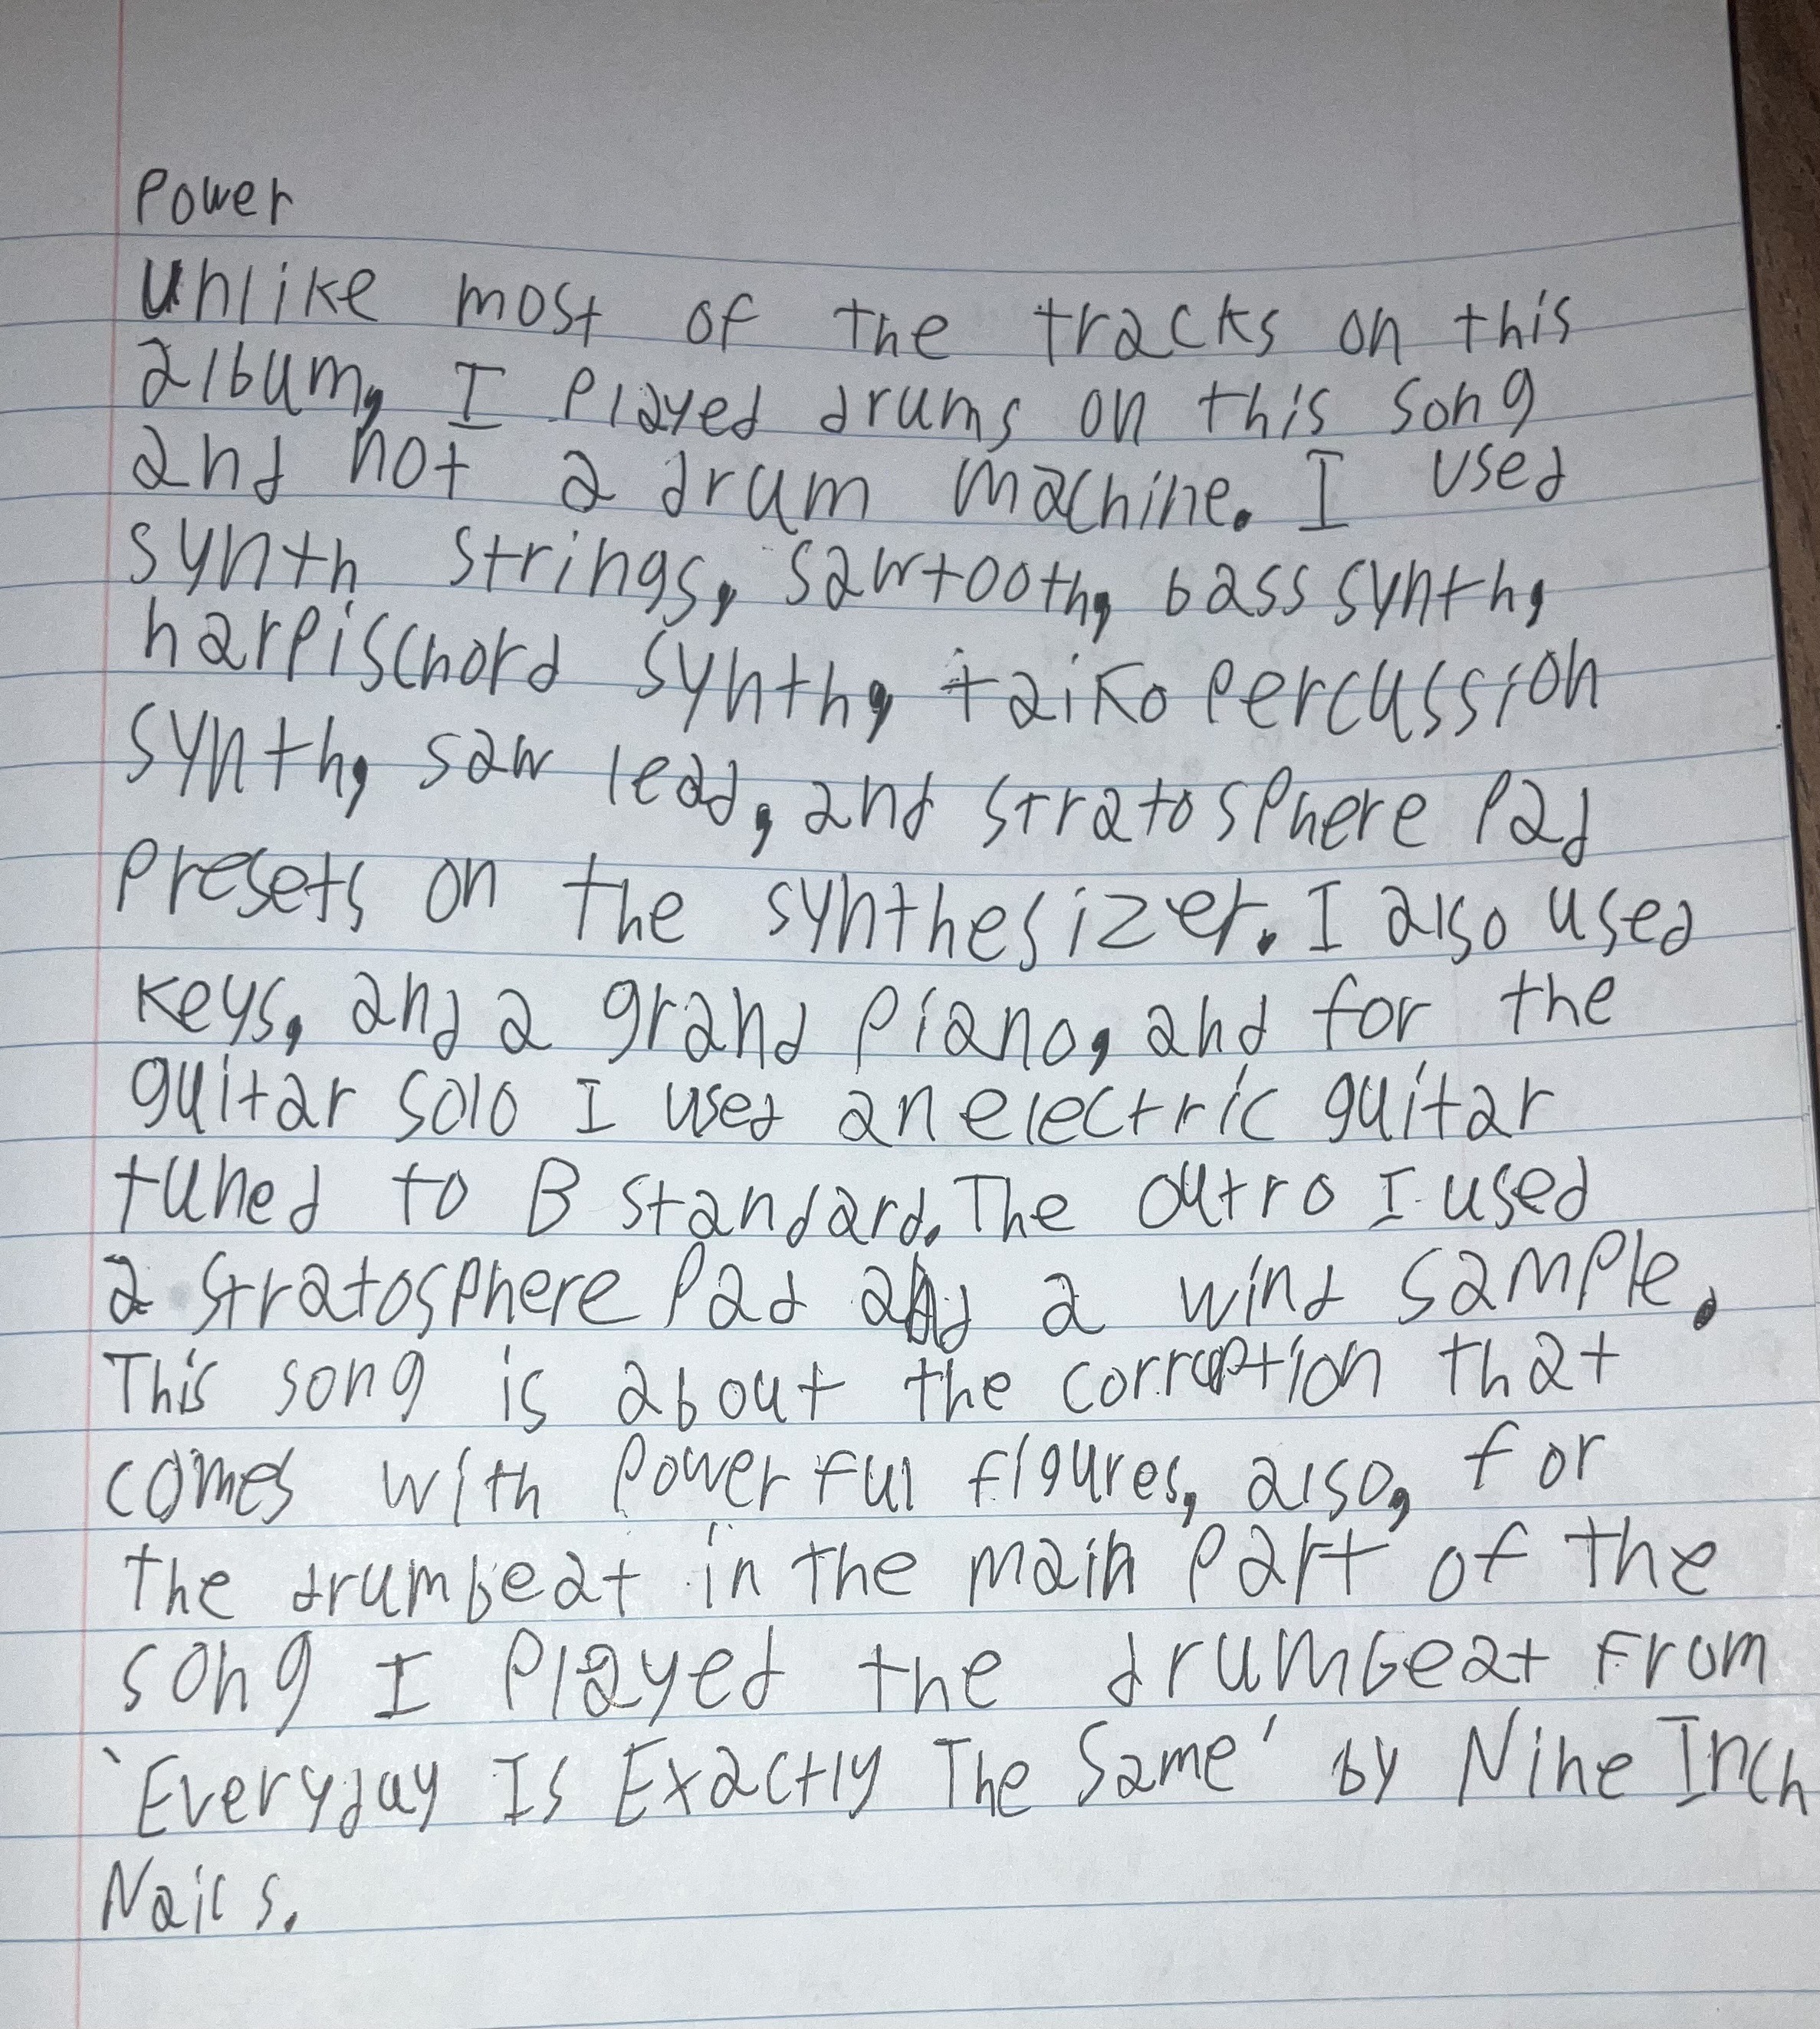 Power
Unlike most of the tracks on this
album, I played drums on this song
and not a drum machine. I used
synth strings, sawtooth, bass synth,
harpischord synth, taiko percussion
synth, saw lead, and stratosphere pad
presets on the synthesizer. I also used
keys, and a grand piano, and for the
guitar solo I used an electric guitar
tuned to B standard. The outro I used
a stratosphere pad and a wind sample.
This song is about the corruption that
comes with powerful figures, also, for
the drumbeat in the main part of the
song I played the drumbeat from
'Everyday Is Exactly The Same' by Nine Inch
Nails.